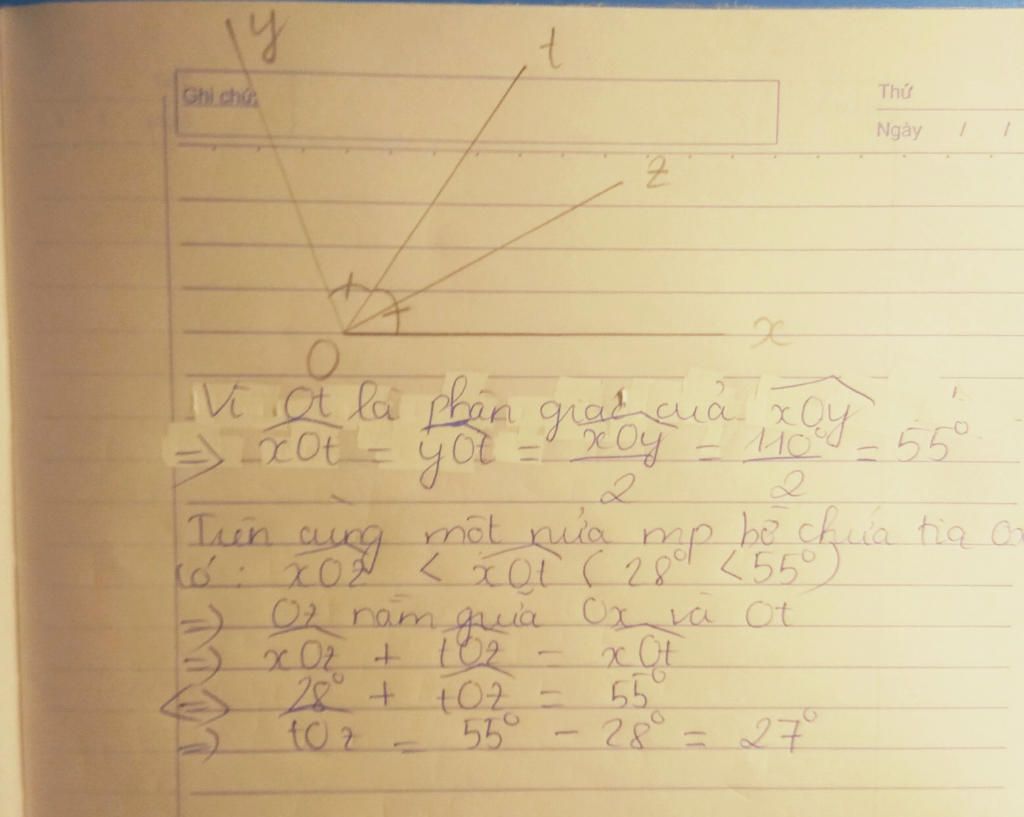 y
t
Ghi chú:
Thứ
Ngày / /
z
x
O
Vì Ot là phân giác của xOy
=> xOt = yOt = xOy/2 = 110°/2 = 55°
Trên cùng một nửa mp bờ chứa tia Ox
có: xOz < xOt ( 28° < 55°)
=> Oz nằm giữa Ox và Ot
=> xOz + tOz = xOt
<=> 28° + tOz = 55°
=> tOz = 55° - 28° = 27°